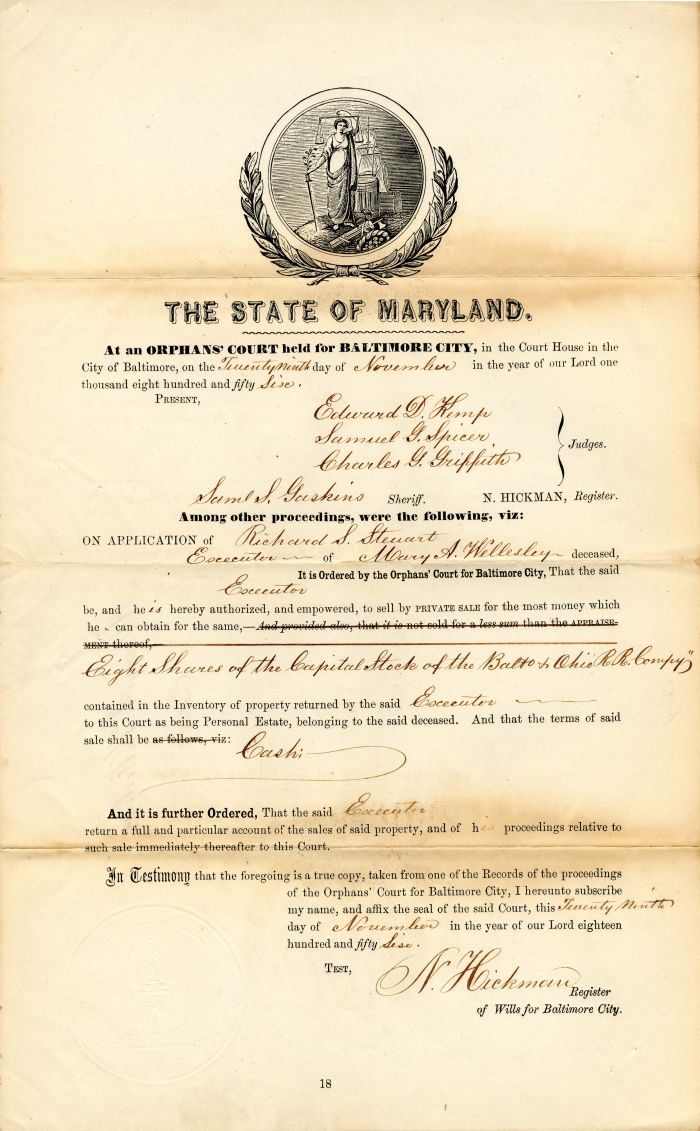 THE STATE OF MARYLAND.
At an ORPHANS' COURT held for BALTIMORE CITY, in the Court House in the
City of Baltimore, on the Twenty Ninth day of November in the year of our Lord one
thousand eight hundred and fifty Six.
PRESENT,
Edward D. Kemp
Samuel G. Spicer,
Charles G. Griffith
Judges.
Saml S. Gaskins Sheriff. N. HICKMAN, Register.
Among other proceedings, were the following, viz:
ON APPLICATION of Richard S. Steuart
Executor of Mary A. Wellesley deceased,
It is Ordered by the Orphans' Court for Baltimore City, That the said
Executor
be, and he is hereby authorized, and empowered, to sell by PRIVATE SALE for the most money which
he - can obtain for the same,—And provided also, that it is not sold for a less sum than the APPRAISE-
MENT thereof,—
Eight Shares of the Capital Stock of the Balto & Ohio R.R. Compy"
contained in the Inventory of property returned by the said Executor
to this Court as being Personal Estate, belonging to the said deceased. And that the terms of said
sale shall be as follows, viz:
Cash:
And it is further Ordered, That the said Executor
return a full and particular account of the sales of said property, and of his proceedings relative to
such sale immediately thereafter to this Court.
In Testimony that the foregoing is a true copy, taken from one of the Records of the proceedings
of the Orphans' Court for Baltimore City, I hereunto subscribe
my name, and affix the seal of the said Court, this Twenty Ninth
day of November in the year of our Lord eighteen
hundred and fifty Six.
TEST,
N. Hickman
Register
of Wills for Baltimore City.
18